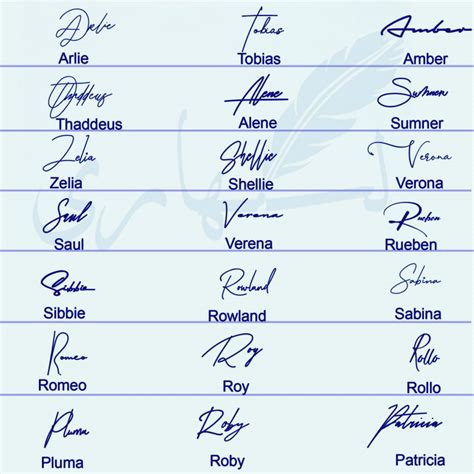 Arlie Tobias Amber
Arlie Tobias Amber
Thaddeus Alene Sumner
Thaddeus Alene Sumner
Zelia Shellie Verona
Zelia Shellie Verona
Saul Verena Rueben
Saul Verena Rueben
Sibbie Rowland Sabina
Sibbie Rowland Sabina
Romeo Roy Rollo
Romeo Roy Rollo
Pluma Roby Patricia
Pluma Roby Patricia